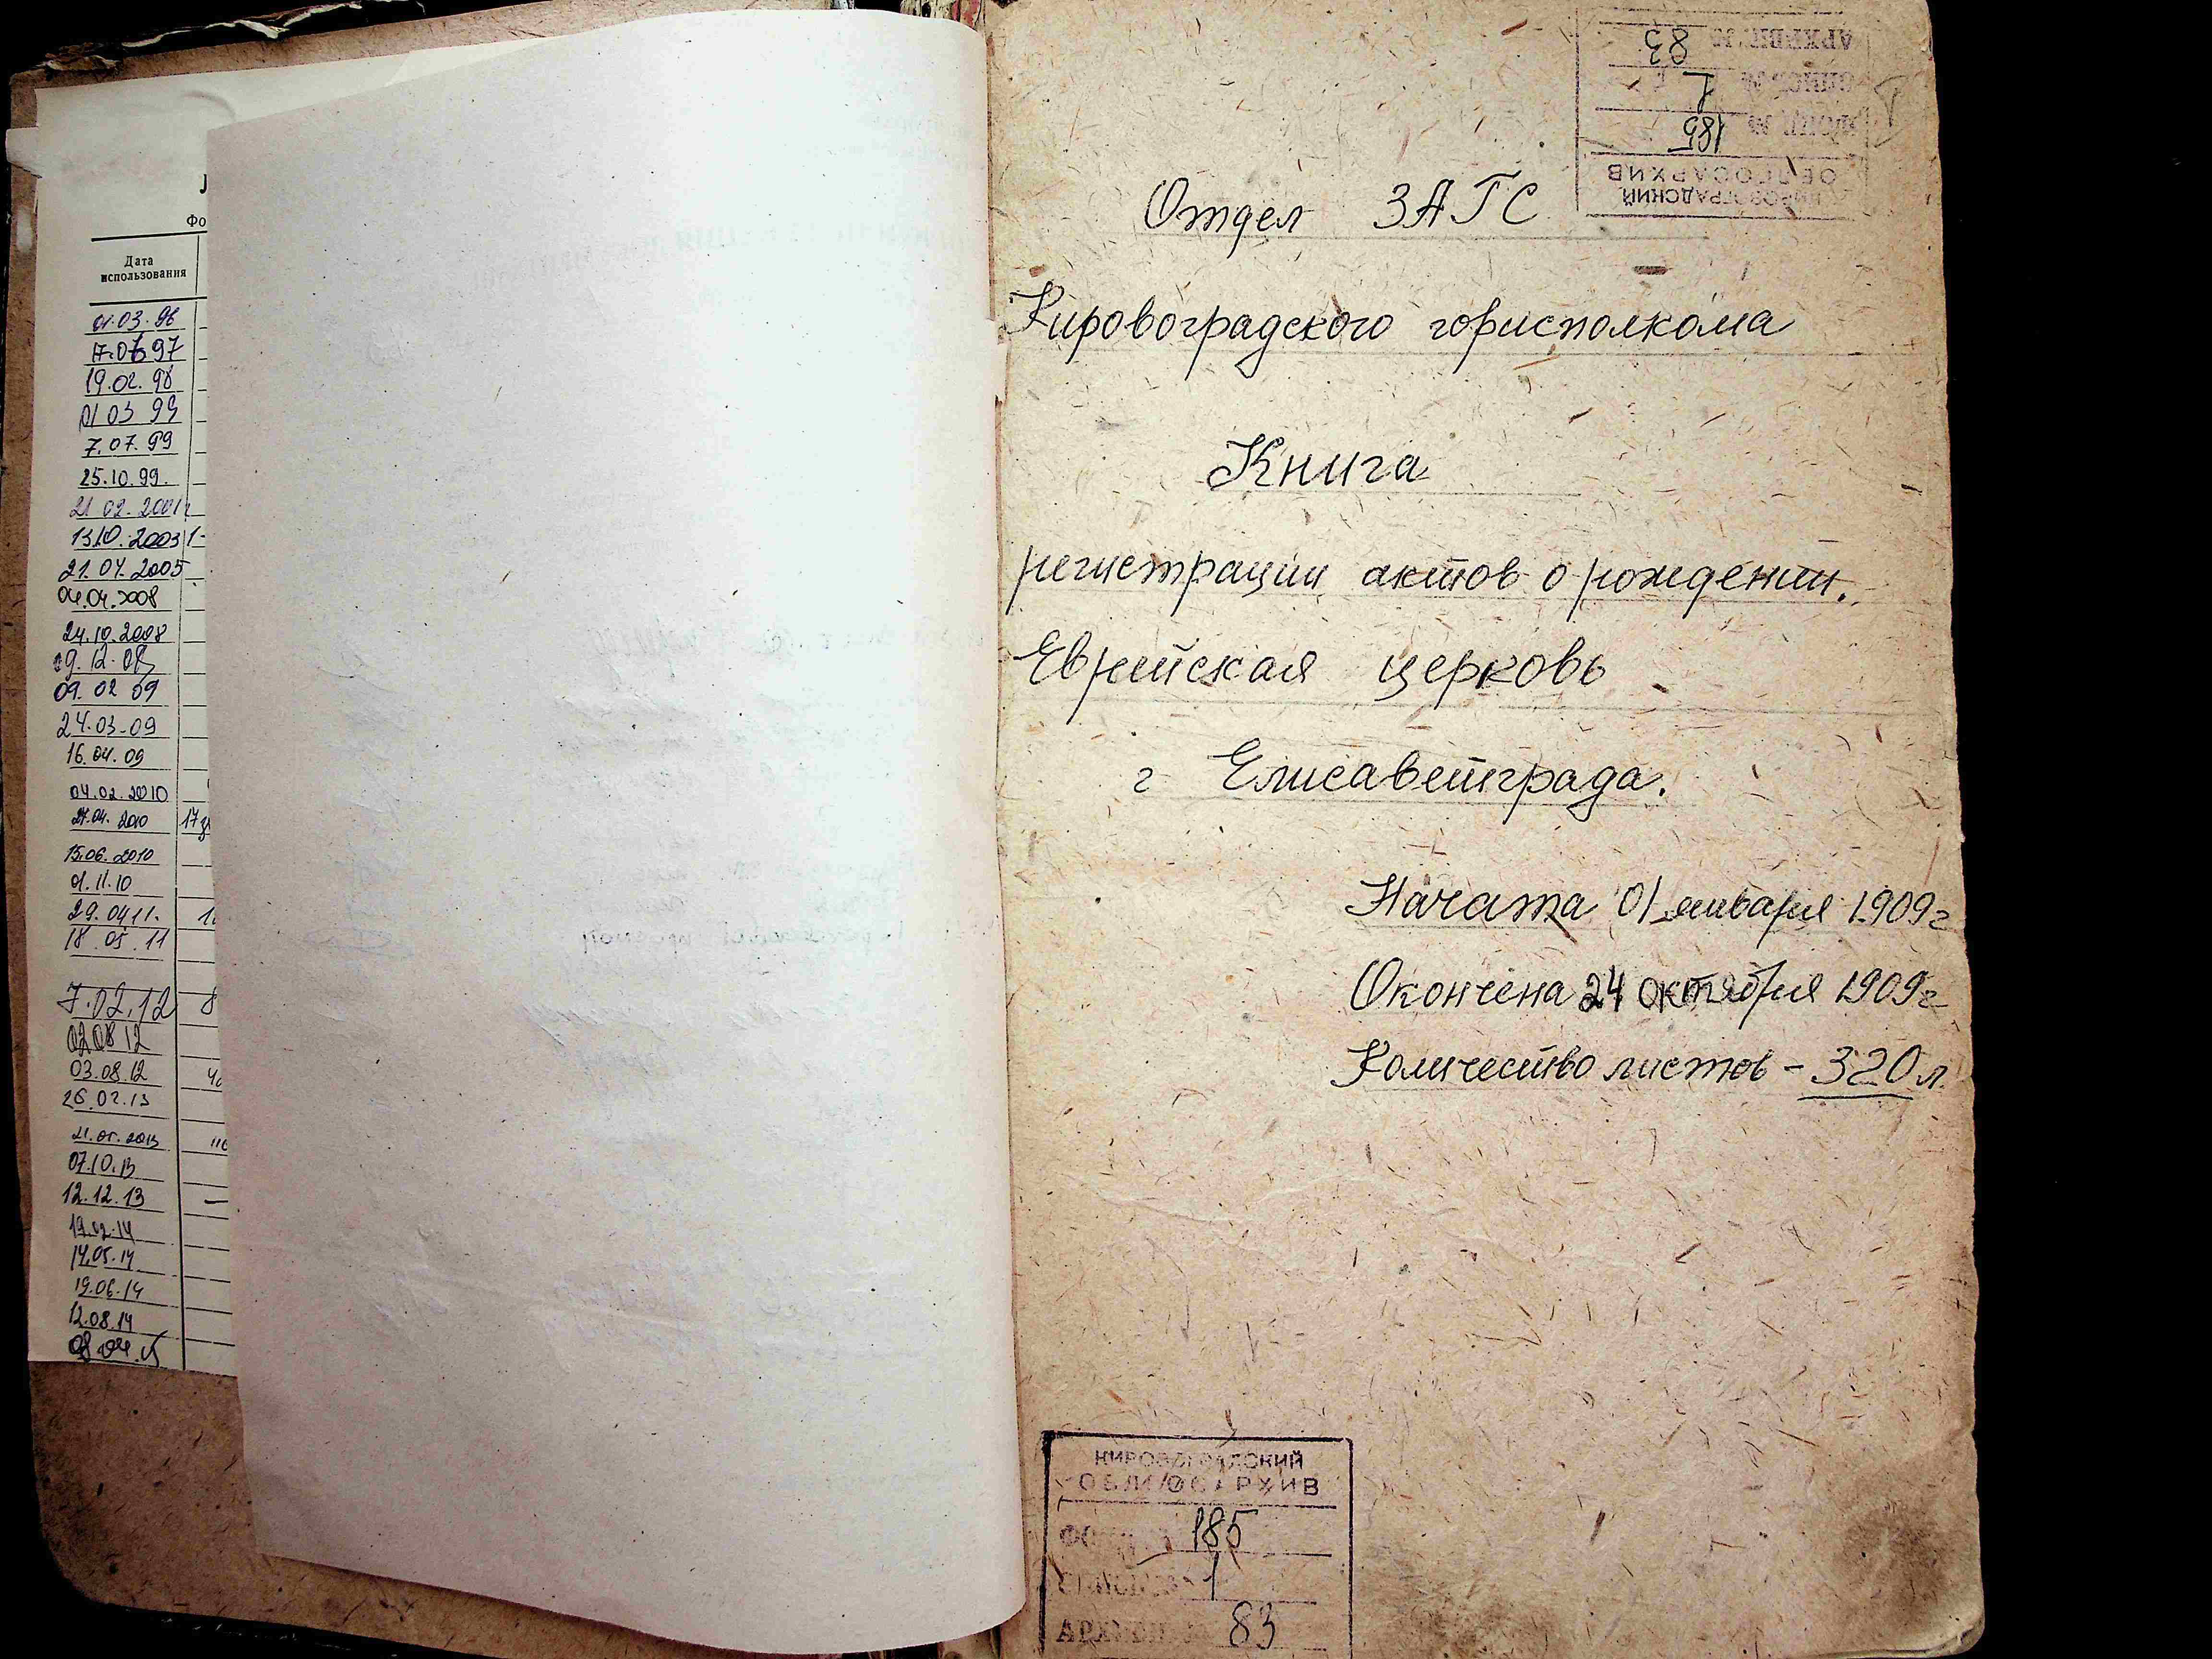 Дата
использования
01.03.96
17.07.97
19.02.98
01 03 99
7.07.99
25.10.99.
21 02.2001г
13.10.2003
21.04.2005
04.04.2008
24.10.2008
09.02 09
24.03-09
16.04.09
04.02.2010
27.04.2010
15.06.2010
01.11.10
29.04 11.
18.05.11
7.02.12
02 08 12
03.08.12
26.02.13
07.10.13
12.12.13
19.02.14
14.05.14
19.06.14
12.08.14
КИРОВОГРАДСКИЙ
ОБЛГОСАРХИВ
185
1
83
Отдел ЗАГС
Кировоградского горисполкома
Книга
регистрации актов о рождении.
Еврейская церковь
г Елисаветграда.
Начата 01 января 1909 г
Окончена 24 октября 1909 г
Количество листов - 320 л
КИРОВОГРАДСКИЙ
ОБЛГОСАРХИВ
ФОНД № 185
ОПИСЬ № 1
АРХИВН. № 83